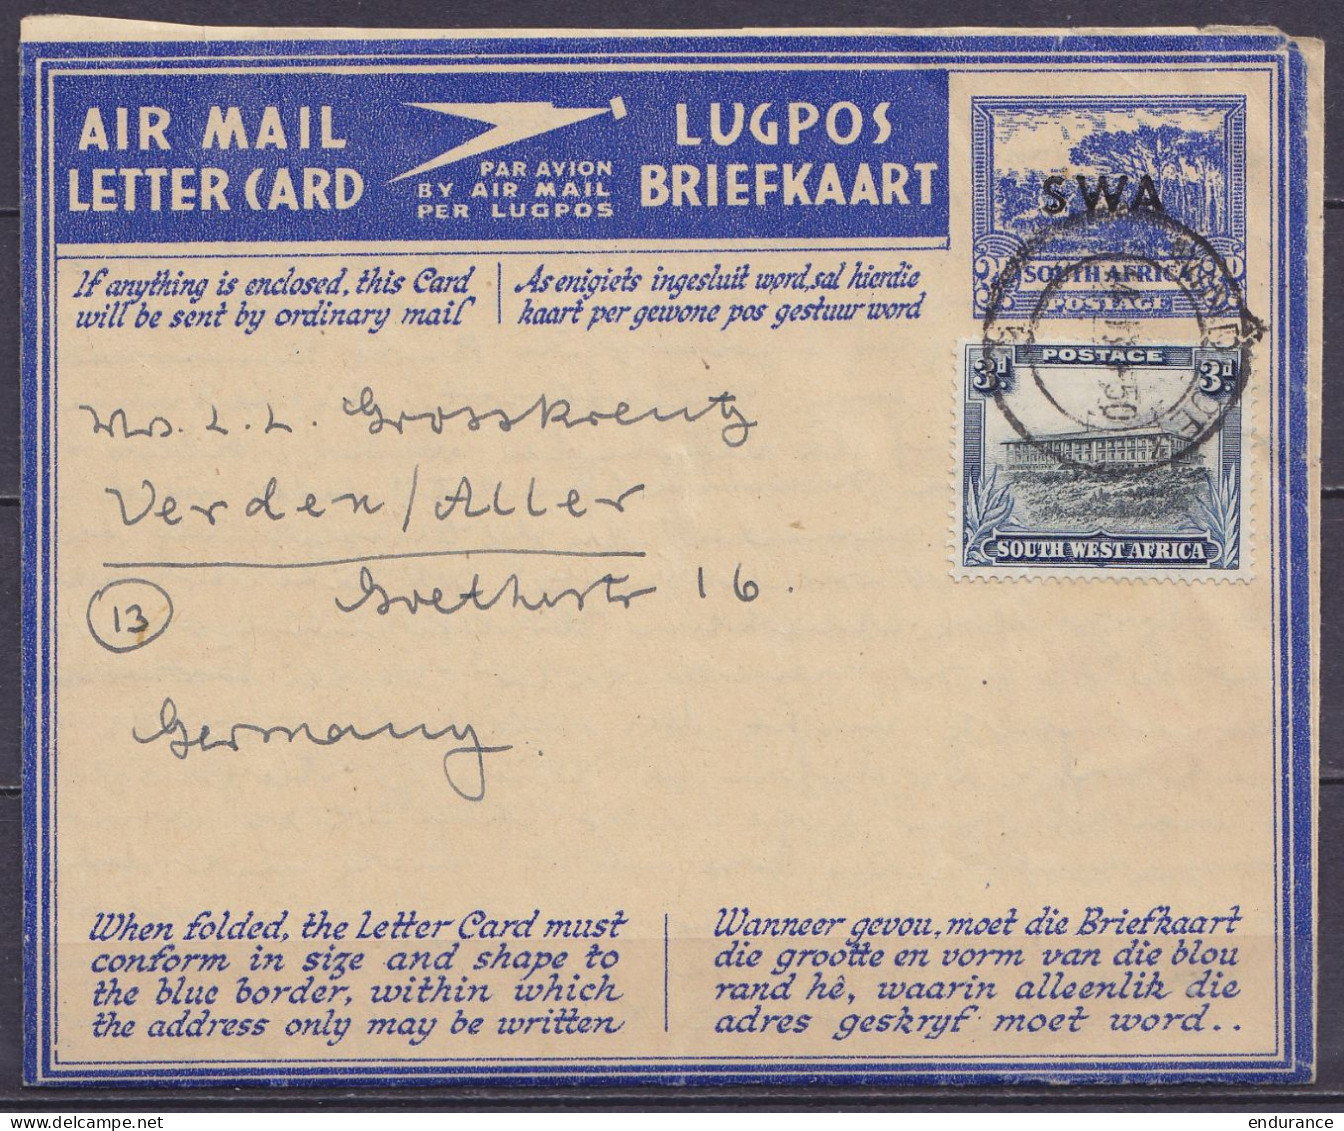 AIR MAIL
LETTER CARD
PAR AVION
BY AIR MAIL
PER LUGPOS
LUGPOS
BRIEFKAART
SWA
SOUTH AFRICA
POSTAGE
If anything is enclosed, this Card
will be sent by ordinary mail
As enigiets ingesluit word, sal hierdie
kaart per gewone pos gestuur word
WINDHOEK
50
POSTAGE
3d. 3d.
SOUTH WEST AFRICA
L. L. Grosskreutz
Verden/Aller
13
Goethestr 16.
Germany.
When folded, the Letter Card must
conform in size and shape to
the blue border, within which
the address only may be written
Wanneer gevou, moet die Briefkaart
die grootte en vorm van die blou
rand hê, waarin alleenlik die
adres geskryf moet word..
endurance